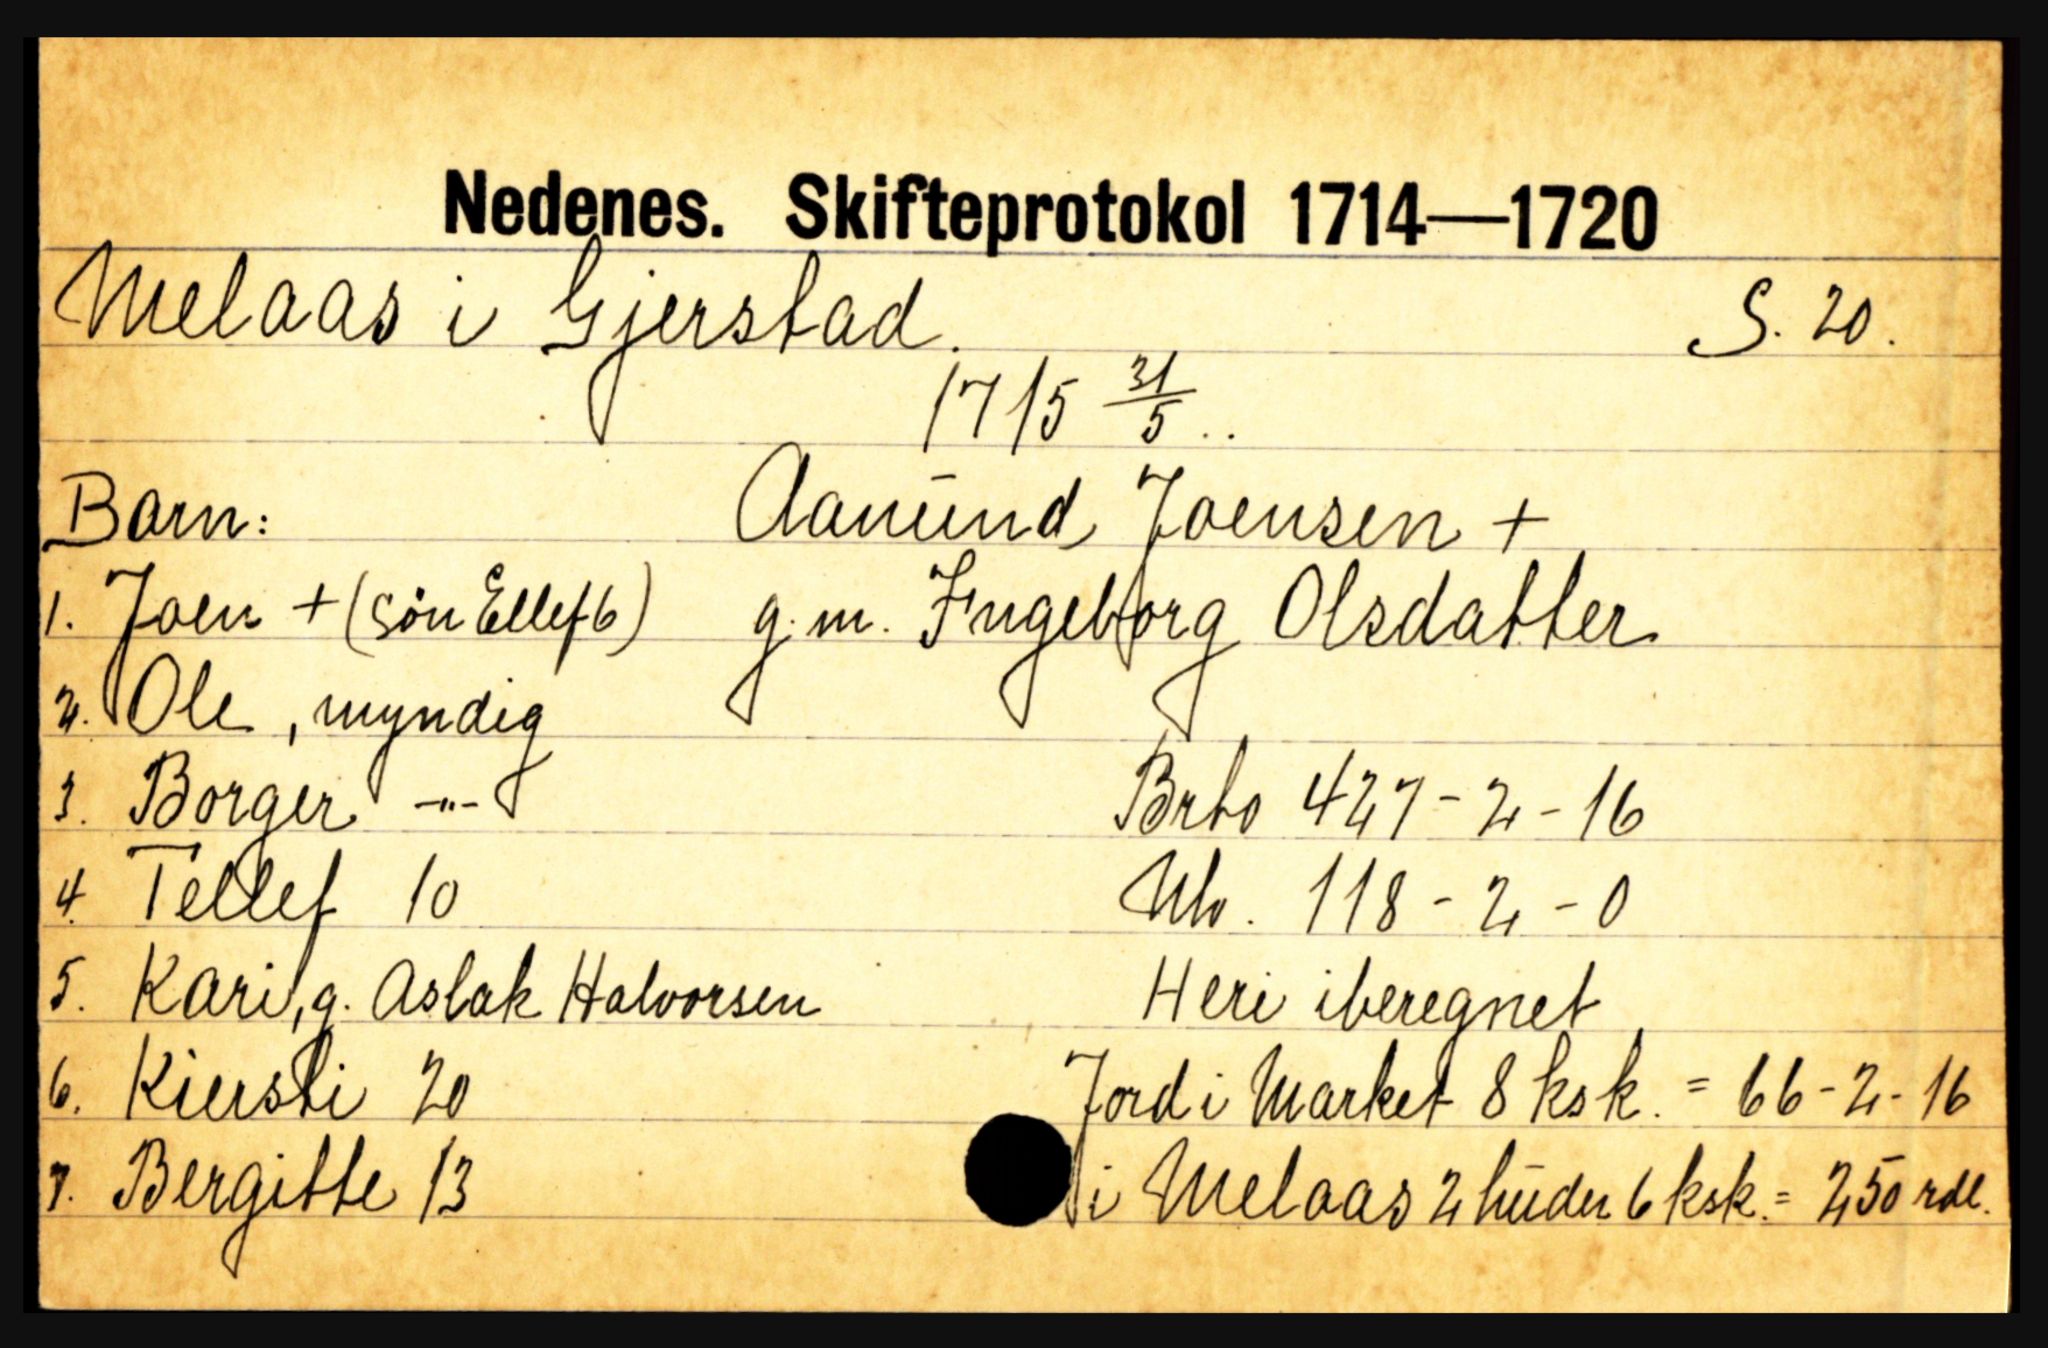 Nedenes. Skifteprotokol 1714—1720
Melaas i Gjerstad. S. 20.
1715 31/5..
Barn: Aanund Joensen +
1. Joen + (sön Ellef 6) g. m. Ingeborg Olsdatter
2. Ole, myndig
3. Borger -"- Brto 427-2-16
4. Tellef 10 Nto. 118-2-0
5. Kari, g. Aslak Halvorsen Heri iberegnet
6. Kiersti 20 Jord i Market 8 ksk. = 66-2-16
7. Bergitte 13 i Melaas 2 huder 6 ksk. = 250 rdl.